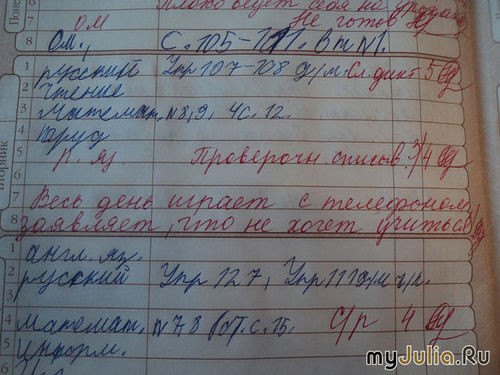 Плохо ведёт себя на уроках
ОМ Не готов
8 Ом., С. 105-111. в т №1.
1 русский Упр 107-108 Сл. дикт 5
2 чтение
3 Математ. №8,9, 4 с. 12.
4 труд
5 р. яз Проверочн. списыв. 3/4
Вторник
7 Весь день играет с телефоном
8 Заявляет, что не хочет учиться!
1 англ. яз.
2 русский Упр 127, Упр 111
3
4 Математ. №7,8 с. 15. С/р 4
5 Информ.
myJulia.Ru